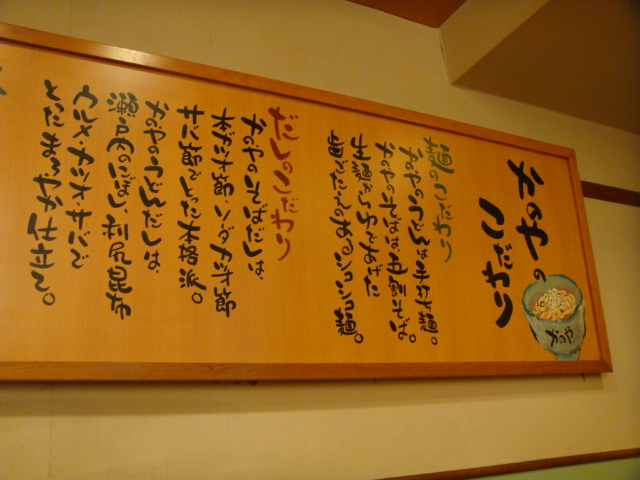 かのやの
こだわり
かのや
麺のこだわり
かのやのうどんは手打ち麺。
かのやのそばは五割そば。
生麺からゆであげた
歯ごたえのあるシコシコ麺。
だしのこだわり
かのやのそばだしは、
本ガツオ節・ソーダガツオ節
サバ節でとった本格派。
かのやのうどんだしは、
瀬戸内のにぼし、利尻昆布
ウルメ・カツオ・サバで
とったまろやか仕立て。